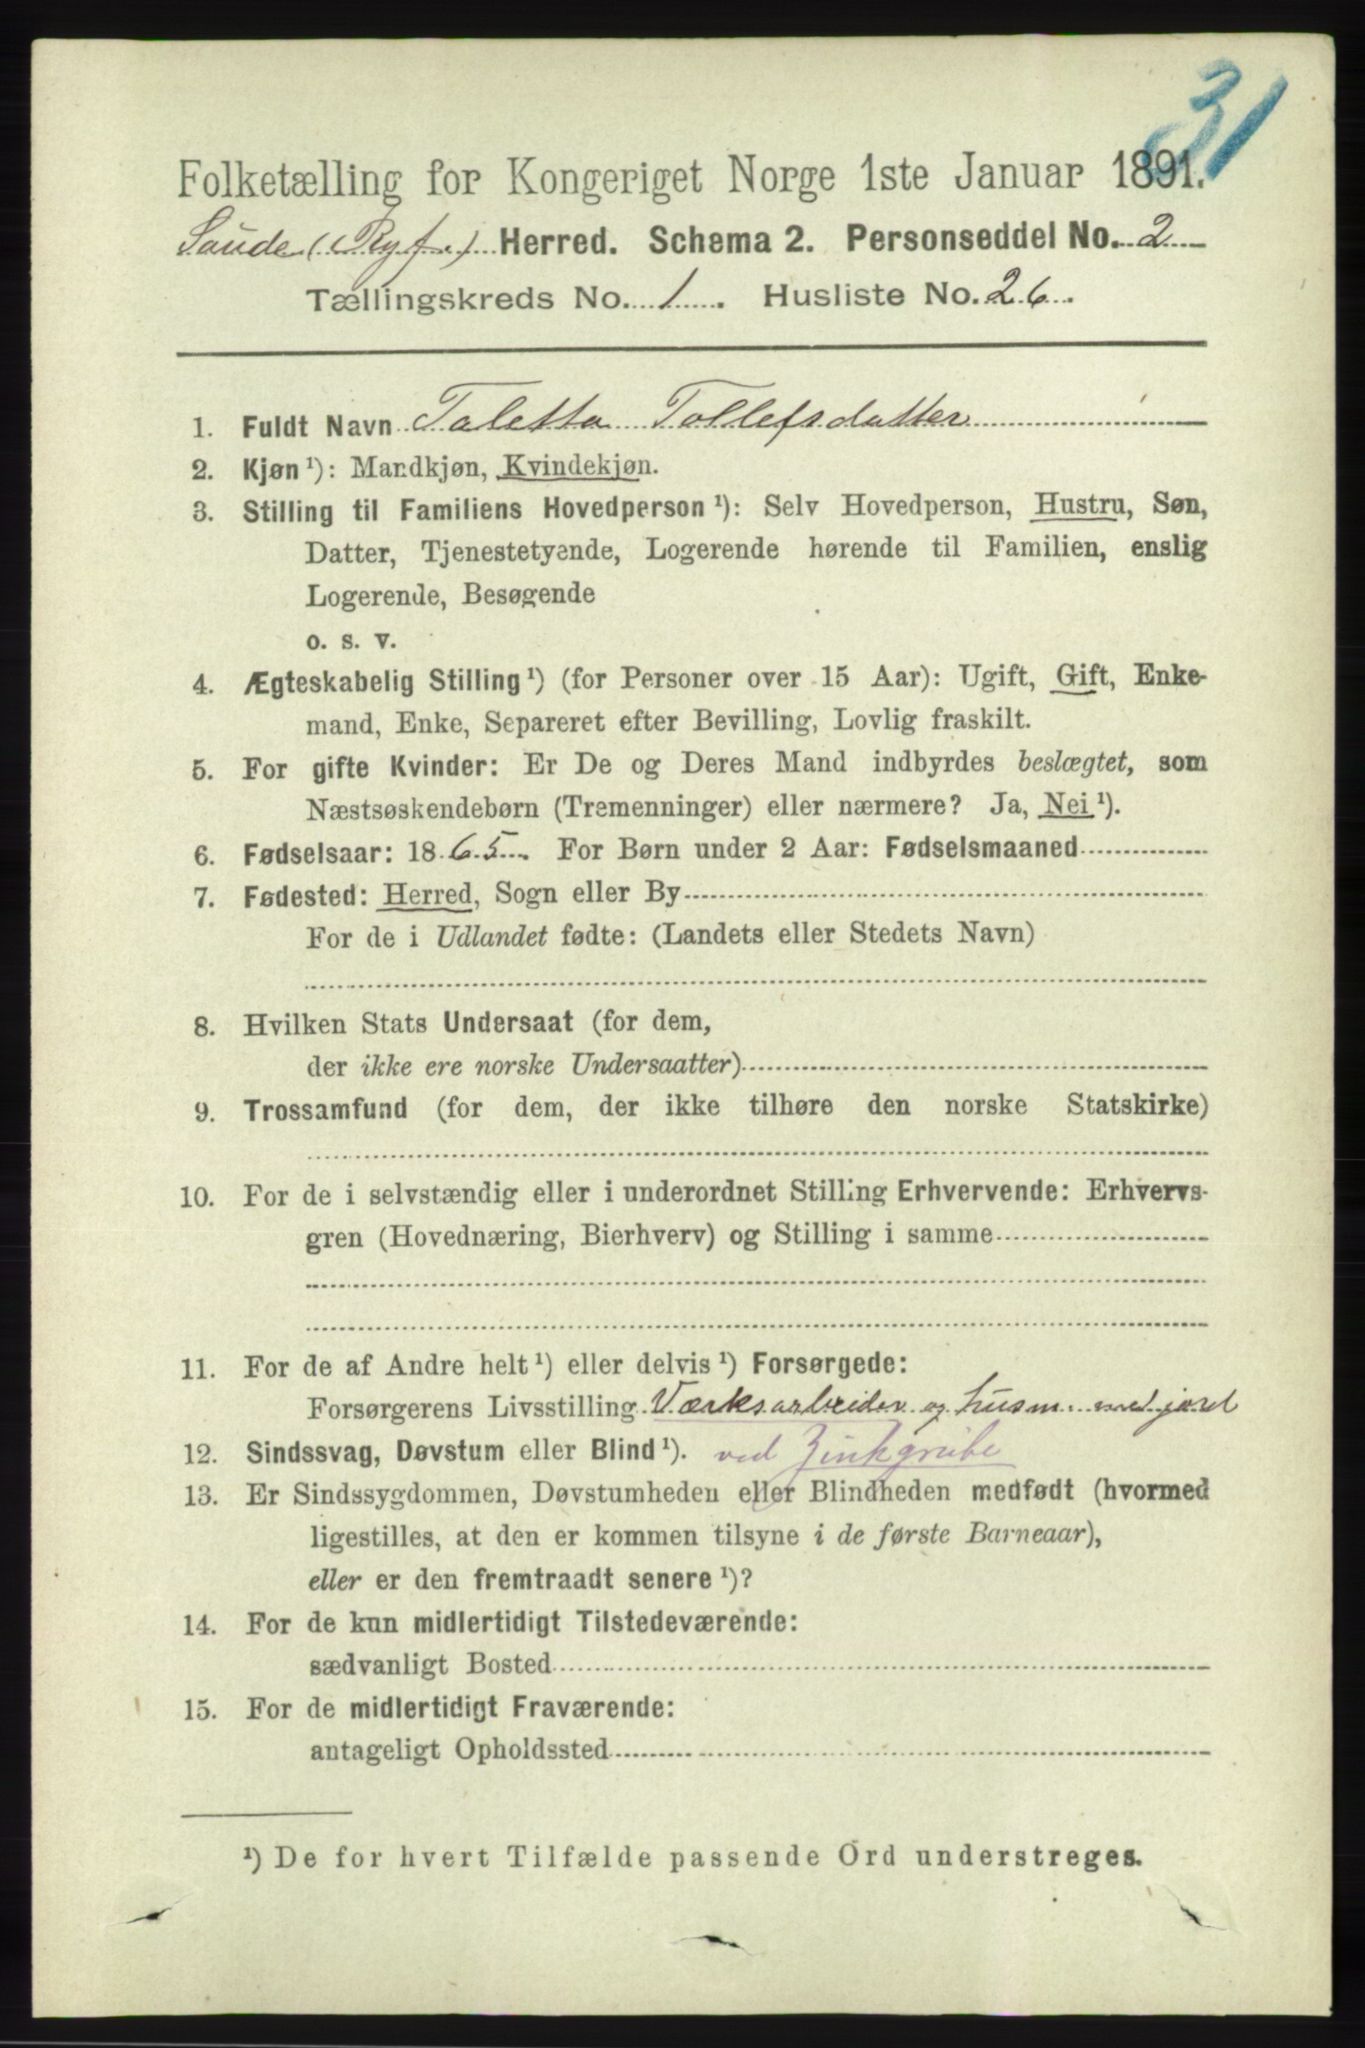 31
Folketælling for Kongeriget Norge 1ste Januar 1891.
Saude (Ryf.) Herred. Schema 2. Personseddel No. 2
Tællingskreds No. 1. Husliste No. 26.
1. Fuldt Navn Taletta Tollefsdatter
2. Kjøn ¹): Mandkjøn, Kvindekjøn.
3. Stilling til Familiens Hovedperson ¹): Selv Hovedperson, Hustru, Søn,
Datter, Tjenestetyende, Logerende hørende til Familien, enslig
Logerende, Besøgende
o. s. v.
4. Ægteskabelig Stilling ¹) (for Personer over 15 Aar): Ugift, Gift, Enke-
mand, Enke, Separeret efter Bevilling, Lovlig fraskilt.
5. For gifte Kvinder: Er De og Deres Mand indbyrdes beslægtet, som
Næstsøskendebørn (Tremenninger) eller nærmere? Ja, Nei ¹).
6. Fødselsaar: 1865. For Børn under 2 Aar: Fødselsmaaned
7. Fødested: Herred, Sogn eller By
For de i Udlandet fødte: (Landets eller Stedets Navn)
8. Hvilken Stats Undersaat (for dem,
der ikke ere norske Undersaatter)
9. Trossamfund (for dem, der ikke tilhøre den norske Statskirke)
10. For de i selvstændig eller i underordnet Stilling Erhvervende: Erhvervs-
gren (Hovednæring, Bierhverv) og Stilling i samme
11. For de af Andre helt ¹) eller delvis ¹) Forsørgede:
Forsørgerens Livsstilling Værksarbeider og husm. med jord
12. Sindssvag, Døvstum eller Blind ¹). ved Zinkgrube
13. Er Sindssygdommen, Døvstumheden eller Blindheden medfødt (hvormed
ligestilles, at den er kommen tilsyne i de første Barneaar),
eller er den fremtraadt senere ¹)?
14. For de kun midlertidigt Tilstedeværende:
sædvanligt Bosted
15. For de midlertidigt Fraværende:
antageligt Opholdssted
¹) De for hvert Tilfælde passende Ord understreges.